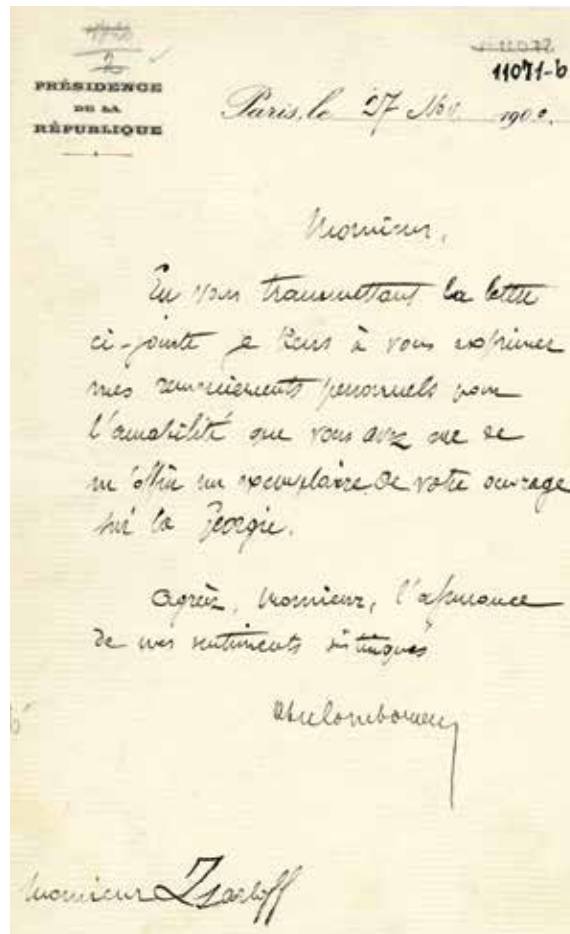 11071-b
PRÉSIDENCE
DE LA
RÉPUBLIQUE
Paris, le 27 Nov. 1900.
Monsieur,
En vous transmettant la lettre
ci-jointe je tiens à vous exprimer
mes remerciements personnels pour
l'amabilité que vous avez eue de
m'offrir un exemplaire de votre ouvrage
sur la Georgie.
Agréez, Monsieur, l'assurance
de mes sentiments distingués
Monsieur Zsarloff